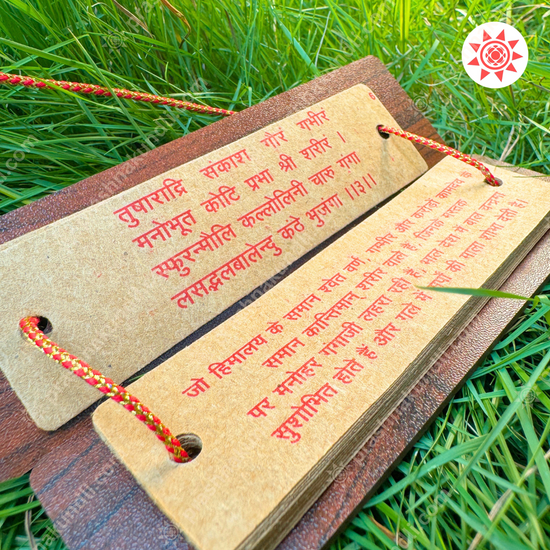 तुषाराद्रि संकाश गौरं गभीरं
मनोभूत कोटि प्रभा श्री शरीरं ।
स्फुरन्मौलि कल्लोलिनी चारु गंगा
लसद्भालबालेन्दु कंठे भुजंगा ।।३।।
जो हिमालय के समान श्वेत वर्ण, गम्भीर और करोड़ों कामदेव के
समान कान्तिमान् शरीर वाले हैं, जिनके मस्तक
पर मनोहर गंगाजी लहरा रही हैं, भाल देश में बाल चन्द्रमा
सुशोभित होते हैं और गले में सर्पों की माला शोभा देती है।